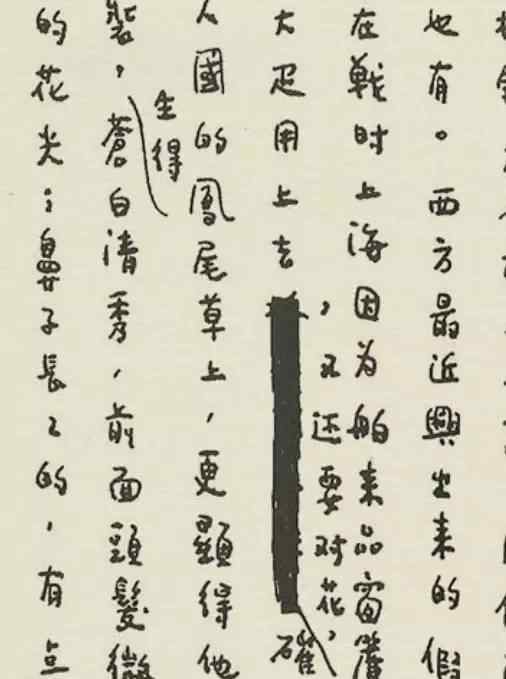 也有。西方最近興出来的假
在戰时上海因为舶来品窗簾
，又还要对花，
大疋用上去
確
人國的鳳尾草上，更顯得他
生得
裝，蒼白清秀，前面頭髮微
的花尖；鼻子長々的，有点